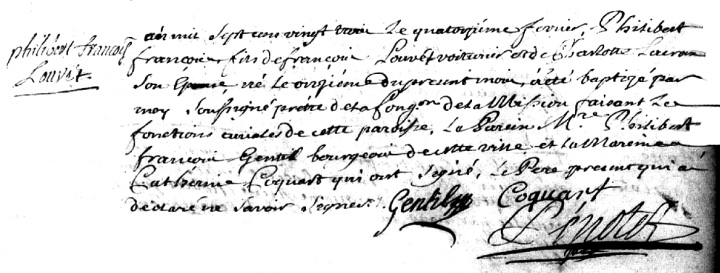 philibert françois
Louvet.
an mil sept cen vingt trois Le quatorzieme fevrier, Philibert
françois fils de françois Louvet voiturier et de Charlotte
son Epouse né Le onzieme du present mois, a été baptizé par
moy Soussigné pretre de la Congon de la Mission faisant Les
fonctions curiales de cette paroisse, Le Parein Mre Philibert
françois Gentil bourgeois de cette ville et La Mareine
Catherine Coquart qui ont signé, Le Pere present qui a
declaré ne savoir signer.
Gentil Coquart